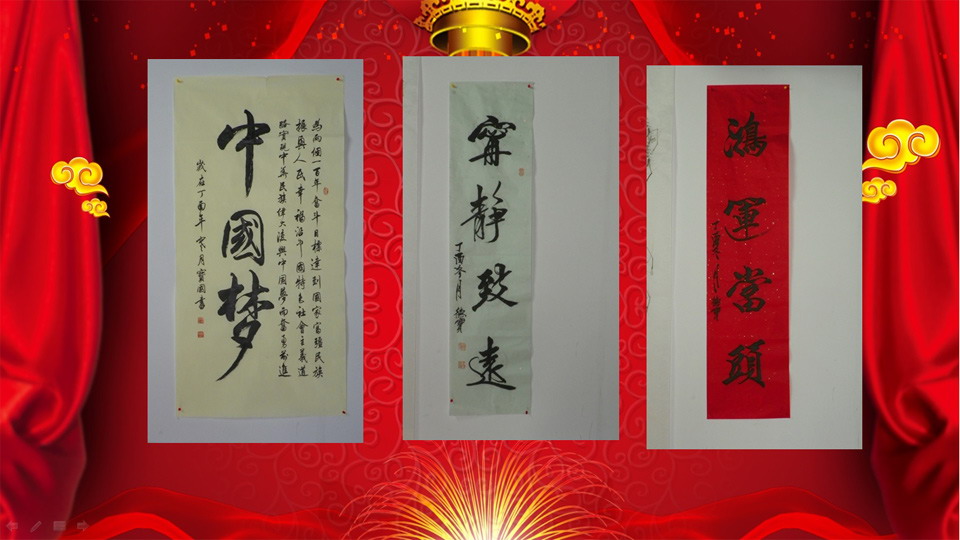 中國梦
為兩個一百年奮斗目標達到國家富強民族
振興人民幸福沿中國特色社會主義道
路實現中華民族偉大復興中國夢而奮勇前進
歲在丁酉年寒月寶國書
寧靜致遠
丁酉冬月
鴻運當頭
丁酉冬月